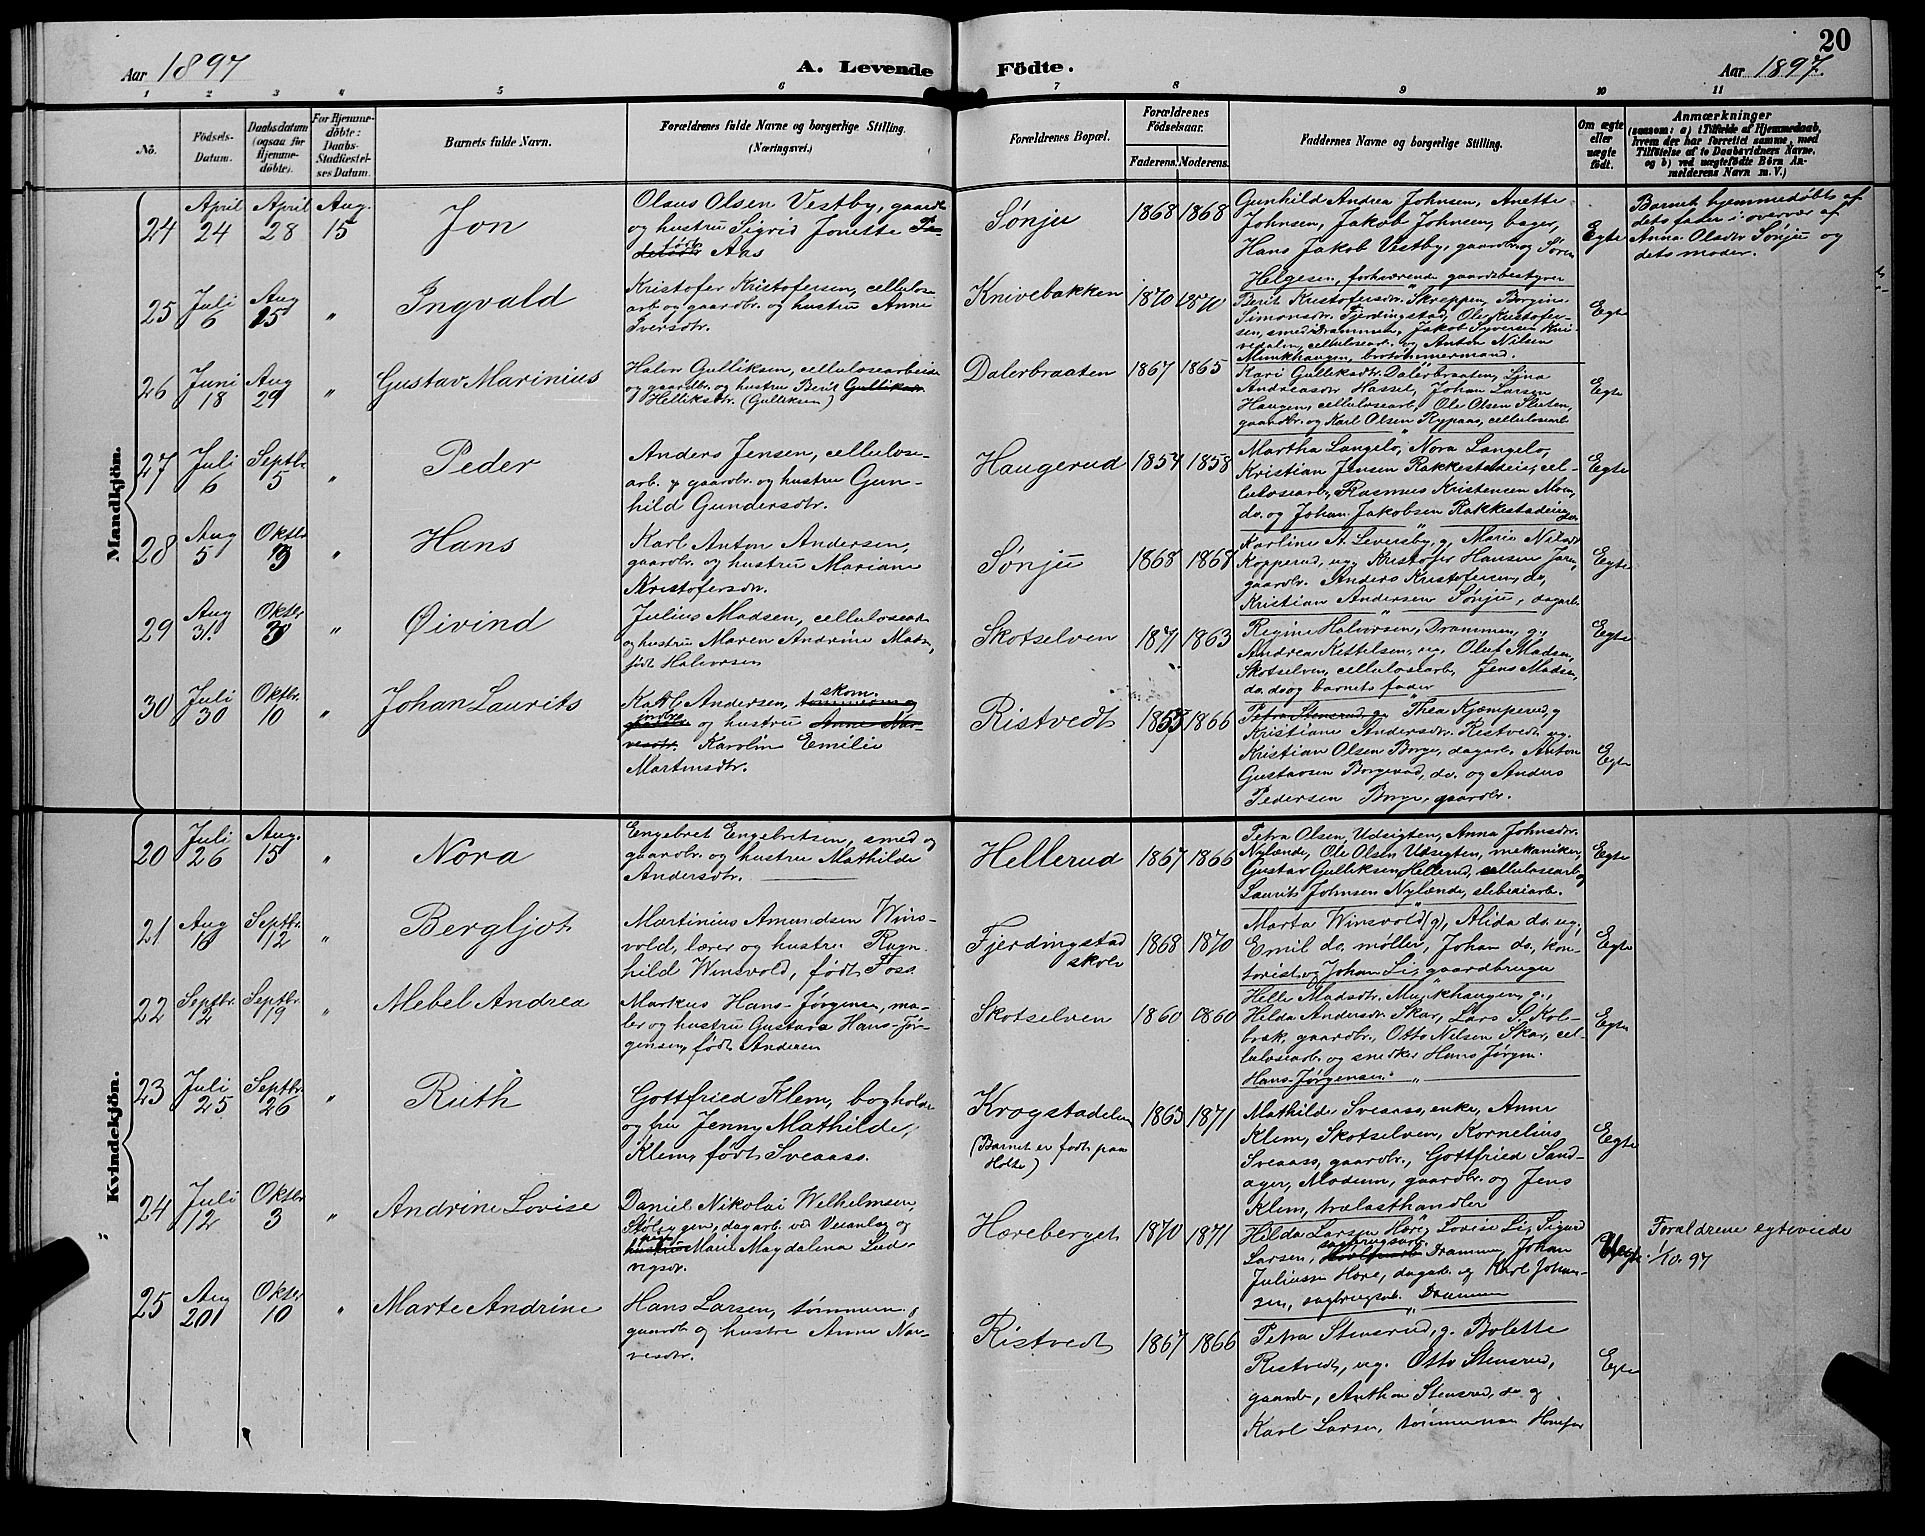 20
Aar 1897
A. Levende Födte.
Aar 1897.
1 2 3 4 5 6 7 8 9 10 11
No.
Födsels-Datum.
Daabsdatum (ogsaa for Hjemme-döbte).
For Hjemme-döbte: Daabs-Stadfæstel-ses Datum.
Barnets fulde Navn.
Forældrenes fulde Navne og borgerlige Stilling. (Næringsvei.)
Forældrenes Bopæl.
Forældrenes Födselsaar.
Faderens. Moderens.
Faddernes Navne og borgerlige Stilling.
Om ægte eller uægte födt.
Anmærkninger
(saasom: a) i Tilfælde af Hjemmedaab,
hvem der har forrettet samme, med
Tilföielse af to Daabsvidners Navne,
og b) ved uægtefödte Börn An-
melderens Navn m. V.)
Mandkjön.
24 April 24 April 28 Aug. 15 Jon
Olaus Olsen Vestby, gaardb
og hustru Sigrid Jonette
født Aas
Sønju 1868 1868
Gunhild Andrea Johnsen, Anette
Johnsen, Jakob Johnsen, bager,
Hans Jakob Vestby, gaardbr og Søren
Helgesen, forhværende gaardsbestyrer
Egte
Barnet hjemmedøbt af
dets fader i overvær af
Anna Olsdtr Sønju og
dets moder.
25 Juli 6 Aug 15 " Ingvald
Kristofer Kristofersen, cellulose
arb og gaardbr. og hustru Anne
Iversdtr.
Knivebakken 1870 1870
Berit Kristofersdtr. Skreppen, Borgine
Simonsdtr. Fjerdingstad, Ole Kristofer-
sen, smed Drammen, Jakob Syversen Kni-
vedalen, cellulosearb. og Anton Nilsen
Munkhaugen, brotømmermand.
Egte
26 Juni 18 Aug 29 " Gustav Marinius
Halvor Gulliksen, cellulosearbeide
og gaardbr. og hustru Berit Gulliksdtr
Helliksdtr. (Gulliksen)
Dalerbraaten 1867 1865
Kari Gulliksdtr. Dalerbraaten, Lina
Andreasdtr Hassel, Johan Larsen
Haugen, cellulosearb, Ole Olsen Sletten,
gaardbr. og Karl Olsen Rypaas, cellulosearb
Egte
27 Juli 6 Septbr. 5 " Peder
Anders Jensen, cellulose-
arb. & gaardbr. og hustru Gun-
hild Gundersdtr.
Haugerud 1854 1858
Martha Langelo, Nora Langelo,
Kristian Jensen Rakkestadeie, cel-
lulosearb, Rasmus Kristensen Moen,
do. og Johan Jakobsen Rakkestadeie do
Egte
28 Aug 5 Oktbr " Hans
Karl Anton Andersen,
gaardbr. og hustru Mariane
Kristofersdtr.
Sønju 1868 1868
Karline A. Leversby, g, Marie Nilsdtr
Kopperud, ug, Kristofer Hansen Jare,
gaardbr. Anders Kristofersen, do,
Kristian Andersen Sønju, dagarb.
Egte
29 Aug 31 Oktbr 3 " Øivind
Julius Madsen, cellulosearb
og hustru Maren Andrine Mads,
født Halvorsen
Skotselven 1871 1863
Regine Halvorsen, Drammen, g,
Andrea Kittilsen, ug. Oluf Madsen,
Skotselven, cellulosearb, Jens Madsen,
do. do og barnets fader
Egte
30 Juli 30 Oktbr. 10 " Johan Laurits
Karl Andersen, skom.
og hustru Anne Nar-
vesdtr. Karoline Emilie
Martinsdtr.
Ristvedt 1866
Petra Stensrud, g. Thea Kjæmperud, g
Kristiane Andersdtr. Ristvedt ug.
Kristian Olsen Borge, dagarb. Anton
Gustavsen Borgerud, do. og Anders
Pedersen Borge, gaardbr.
Egte
Kvindekjön.
20 Juli 26 Aug. 15 " Nora
Engebret Engebretsen, smed og
gaardbr. og hustru Mathilde
Andersdtr.
Hellerud 1867 1866
Petra Olsen, Udsigten, Anna Johnsdtr.
Nylænde, Ole Olsen Udsigten, mekaniker,
Gustav Gulliksen Hellerud, cellulosearb og
Laurits Johnsen Nylænde, sliberiarb.
Egte
21 Aug 16 Septbr. 12 " Bergljot
Martinius Amundsen Wins-
vold, lærer og hustru Ragn-
hild Winsvold, født Foss
Fjerdingstad skole 1868 1870
Marta Winsvold (g), Alida do. ug,
Emil do. møller, Johan do, kon-
torist og Johan Li, gaardbruger
Egte
22 Septbr. 2 Septbr 19 " Mebel Andrea
Markus Hans-Jørgensen, ma-
ler og hustru Gustava Hans-Jør-
gensen, født Andersen
Skotselven 1860 1860
Helle Madsdtr. Munkhaugen, g.,
Hilda Andersdtr Skar, Lars S. Kol-
brek, gaardbr., Otto Nilsen Skar, cel-
lulosearb. og snedker Hans Jørgen
Hans-Jørgensen.
Egte
23 Juli 25 Septbr. 26 " Ruth
Gottfried Klem, bogholder
og fru Jenny Mathilde
Klem, født Sveaass.
Krogstadelven
(Barnet er født paa
Holte)
1863 1871
Mathilde Sveaass, enke, Anne
Klem, Skotselven, Kornelius
Sveaass, gaardbr., Gottfried Sand-
ager, Modum, gaardbr. og Jens
Klem, trælasthandler
Egte
24 Juli 12 Oktbr 3 " Andrine Lovise
Daniel Nikolai Wilhelmsen,
dagarb. ved Veianlæg og
pige Marie Magdalena Lud-
vigsdr.
Hæreberget 1870 1871
Hilda Larsen Høre, Lovise Li, Sigurd
Larsen, sagbrugsarb. Drammen, Johan
Juliussen Høre, dagarb. og Karl Johan-
sen, sagbrugsarb. Drammen
Uegte
Forældrene egteviede
1/10. 97
25 Aug 20 Oktbr 10 " Marte Andrine
Hans Larsen, tømmerm.
gaardbr og hustru Anne Nar-
vesdtr.
Ristvedt 1867 1866
Petra Stensrud, g. Bolette
Ristvedt, ug. Otto Stensrud,
gaardbr, Anthon Stensrud, do og
Karl Larsen, tømmerman
Egte